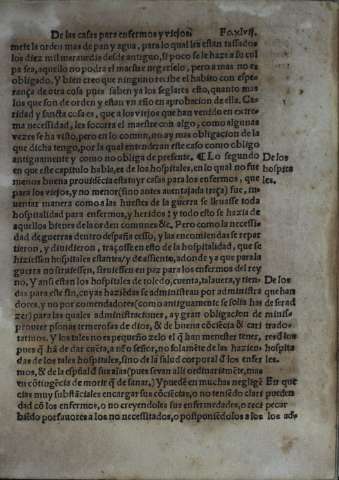 De las casas para enfermos y viejos. Fo.xlvij.
mete la orden mas de pan y agua, para lo qual les estan tassados
los diez mil marauedis desde antiguo, si poco se le haze a su cul
pa sea, aquello no podra el maestro negarselo, pero a mas no es
obligado. Y bien creo que ninguno recibe el habito con espe
rança de otra cosa pues saben ya los seglares esto, quanto mas
los que son de orden y estan vn año en aprobacion de ella. Ca
ridad y sancta cosa es, que a los viejos que han venido en extre
ma necessidad, les socorra el maestro con algo, como algunas
vezes se ha visto, pero en lo comun, no ay mas obligacion de la
que dicha tengo, por la qual entenderan este caso como obligo
antiguamente y como no obliga de presente. ¶ Lo segundo
De los
en que este capitulo hable, es de los hospitales, en lo qual no fue
hospita
menos buena prouidēcia estatuyr casas para los enfermos, que
les.
para los viejos, y no menor (sino antes auentajada traça) fue, in
uentar manera como a las huestes de la guerra se lleuasse toda
hospitalidad para enfermos, y heridos: y todo esto se hazia de
aquellos bienes de la orden comunes &c. Pero como la necessi
dad de guerras dentro despaña cesso, y las encomiendas se repar
tieron, y diuidieron, traçosse en esto de la hospitalidad, que se
hiziessen hospitales estantes, y de assiento, adonde ya que para la
guerra no siruiessen, siruiessen en paz para los enfermos del rey
no, Y ansi estan los hospitales de toledo, cuenca, talauera, y tien
De los
das para este fin, cuyas haziēdas se administran por administra
que han
dores, y no por comendadores (como antiguamente se solia ha
de ser ad
zer) para las quales administraciones, ay gran obligacion de
minis
proueer personas temerosas de dios, & de buena cōsciēcia & ca
trado
ritatinos. Y los tales no es pequeño zelo el q̄ han menester tener,
res d los
pues q̄ hā de dar cuēta, a nr̄o señor, no solamēte de las haziēn
hospita
das de los tales hospitales, sino de la salud corporal d̄ los enfer
les.
mos, & de la esp̄ual d̄ sus alas (pues se van alli ordinariamēte, mas
en cōtingēcia de morir q̄ de sanar,) Y puedē en muchas negligē
En que
cias muy substāciales encargar sus cōsciēcias, o no teniēdo cari
pueden
dad cō los enfermos, o no creyendo les sus enfermedades, o reci
pecar
biēdo por fauores a los no necessitados, o posponiēdolos a los
los ad-